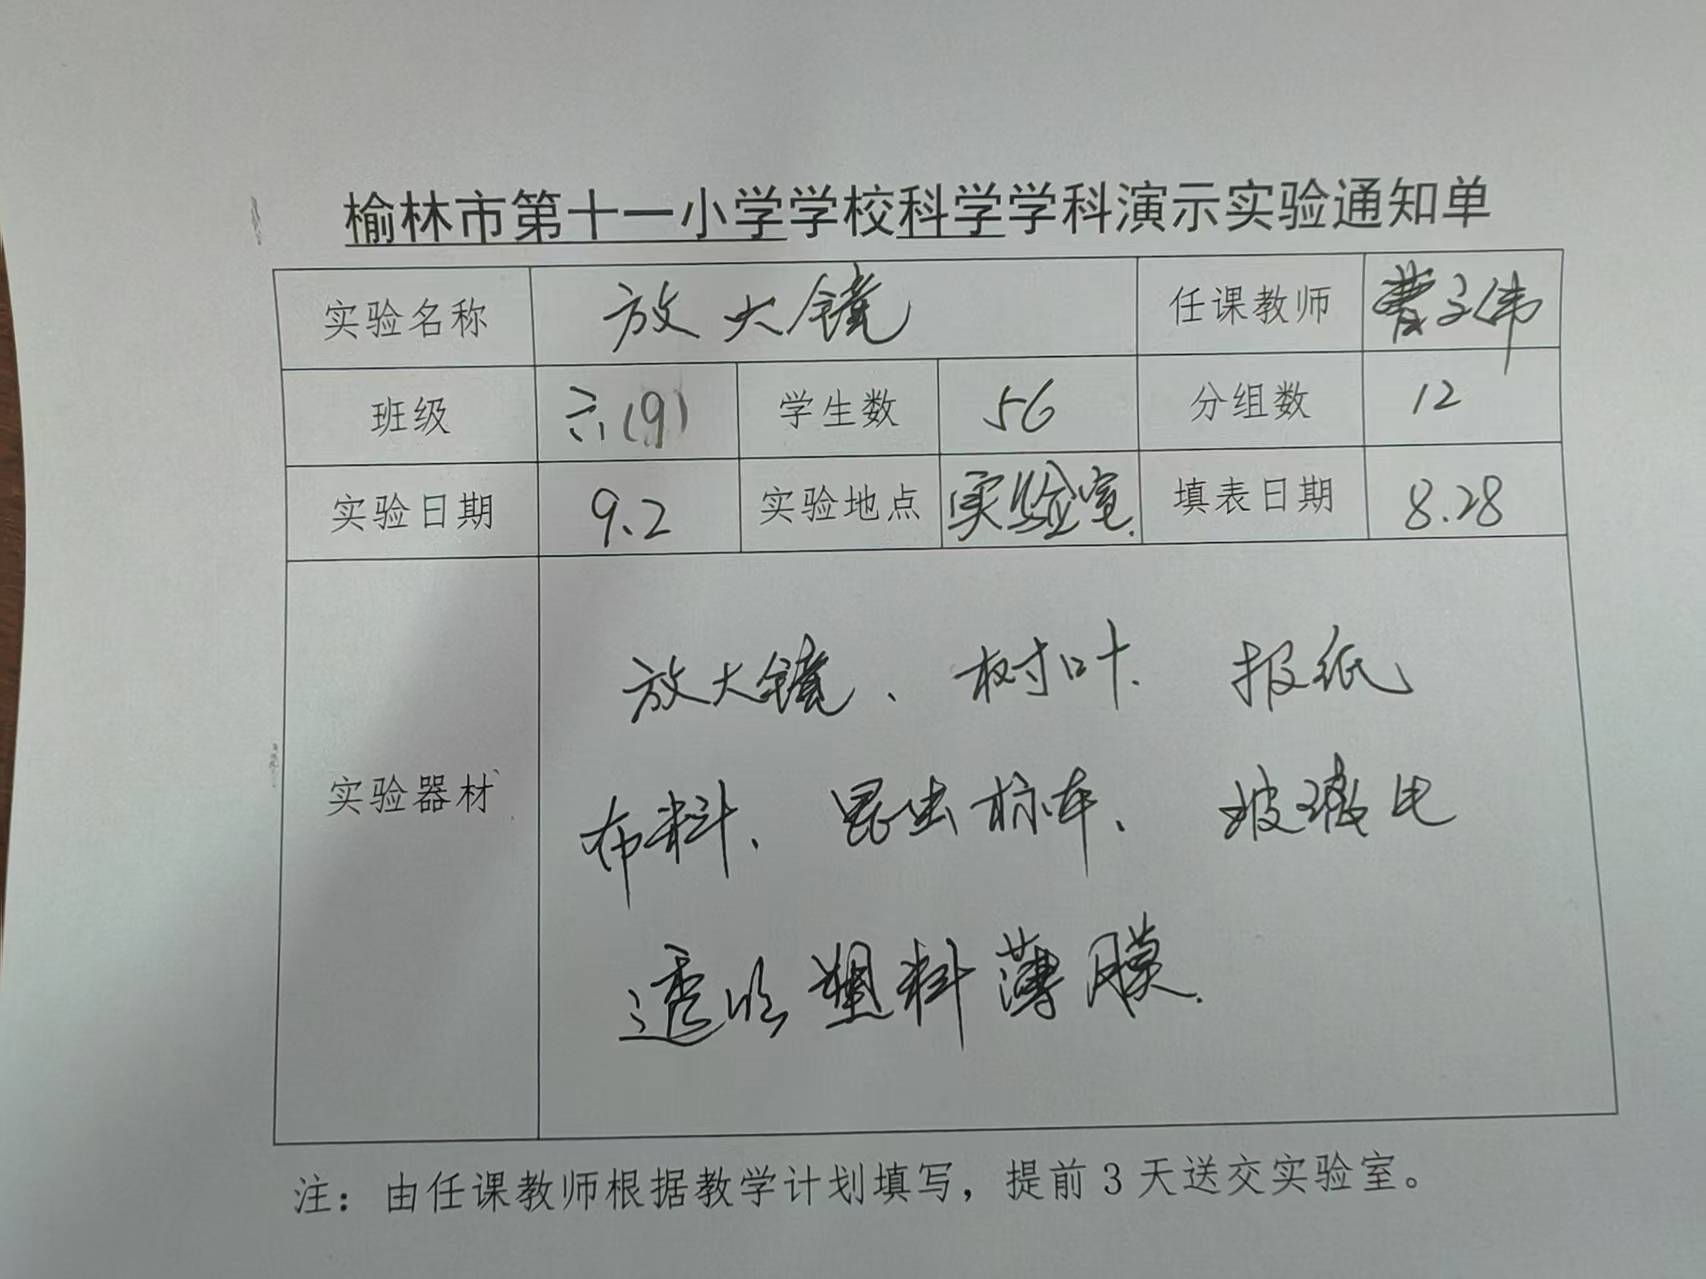 榆林市第十一小学学校科学学科演示实验通知单
实验名称 放大镜 任课教师 曹子伟
班级 六(9) 学生数 56 分组数 12
实验日期 9.2 实验地点 实验室. 填表日期 8.28
实验器材
放大镜、树叶. 报纸
布料、昆虫标本、玻璃
透明塑料薄膜.
注：由任课教师根据教学计划填写，提前3天送交实验室。